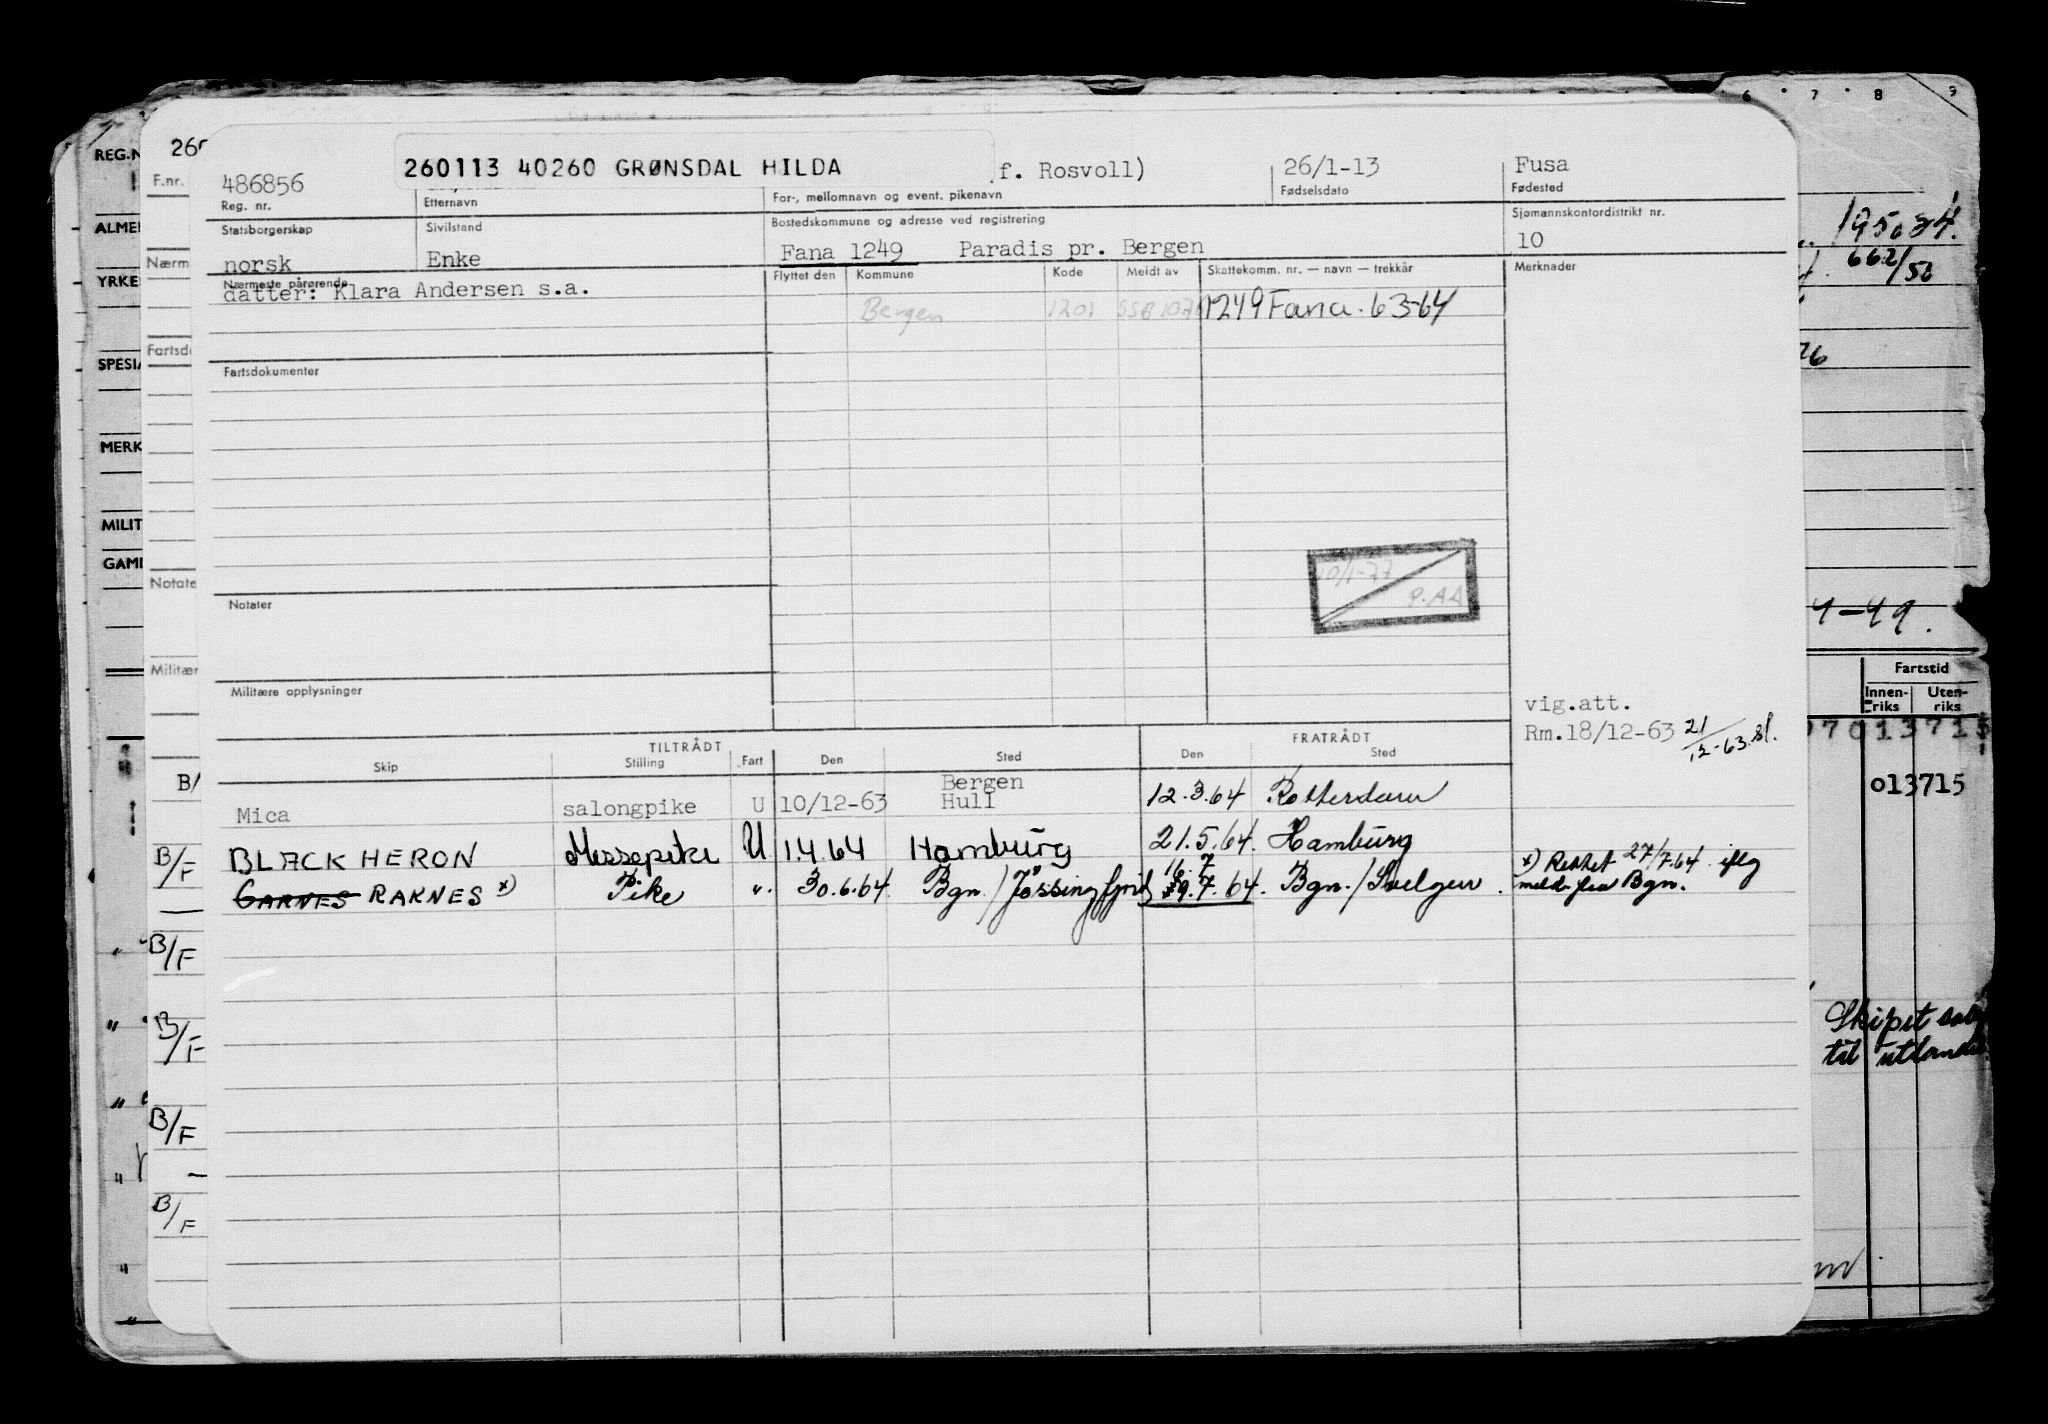 6 7 8 9
REG.N
260
F.nr.
260113 40260 GRØNSDAL HILDA
f. Rosvoll)
26/1-13
Fusa
486856
Reg. nr.
Etternavn
For-, mellomnavn og event. pikenavn
Fødselsdato
Fødested
Statsborgerskap
Sivilstand
Bostedskommune og adresse ved registrering
Sjømannskontordistrikt nr.
norsk
Enke
Fana 1249 Paradis pr. Bergen
10
Nærmeste pårørende
datter: Klara Andersen s.a.
Flyttet den
Kommune
Kode
Meldt av
Skattekomm. nr. — navn — trekkår
Merknader
Bergen
1201
1249 Fana. 63-64
Fartsdokumenter
10/1-77
P.AA
Notater
Militære opplysninger
vig.att.
Rm.18/12-63 21/12-63.
TILTRÅDT
FRATRÅDT
Skip
Stilling
Fart
Den
Sted
Den
Sted
Mica
salongpike
U
10/12-63
Bergen
Hull
12.3.64
Rotterdam
B/F
BLACK HERON
Messepike
U
1.4.64
Hamburg
21.5.64.
Hamburg
GARNES RAKNES x)
Pike
"
30.6.64
Bgn./Jøssingfjord
16.7
9.7.64.
Bgn./Svelgen.
x) Rettet 27/7.64 iflg
meld. fra Bgn.
ALMEI
Nærm
YRKE
Fartsd
SPESIA
MERK
MILIT
GAMI
Notate
Militær
B/
B/F
B/F
B/F
B/F
662/50
4-49.
Fartstid
Innenriks
Uten-
riks
013715
013715
Skipet
til